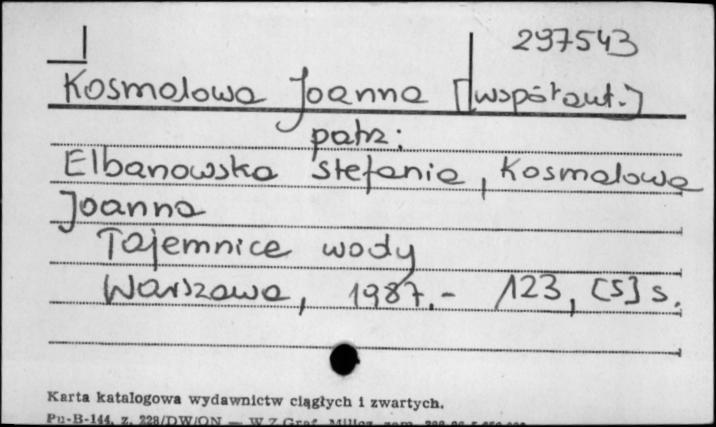 297543
Kosmalowa Joanna [współaut.]
patrz:
Elbanowska Stefania, Kosmalowa
Joanna
Tajemnice wody
Warszawa, 1987.- 123, [5] s.
Karta katalogowa wydawnictw ciągłych i zwartych.
Pu-B-144, z. 228/DW/ON — WZGraf. Milicz, zam.